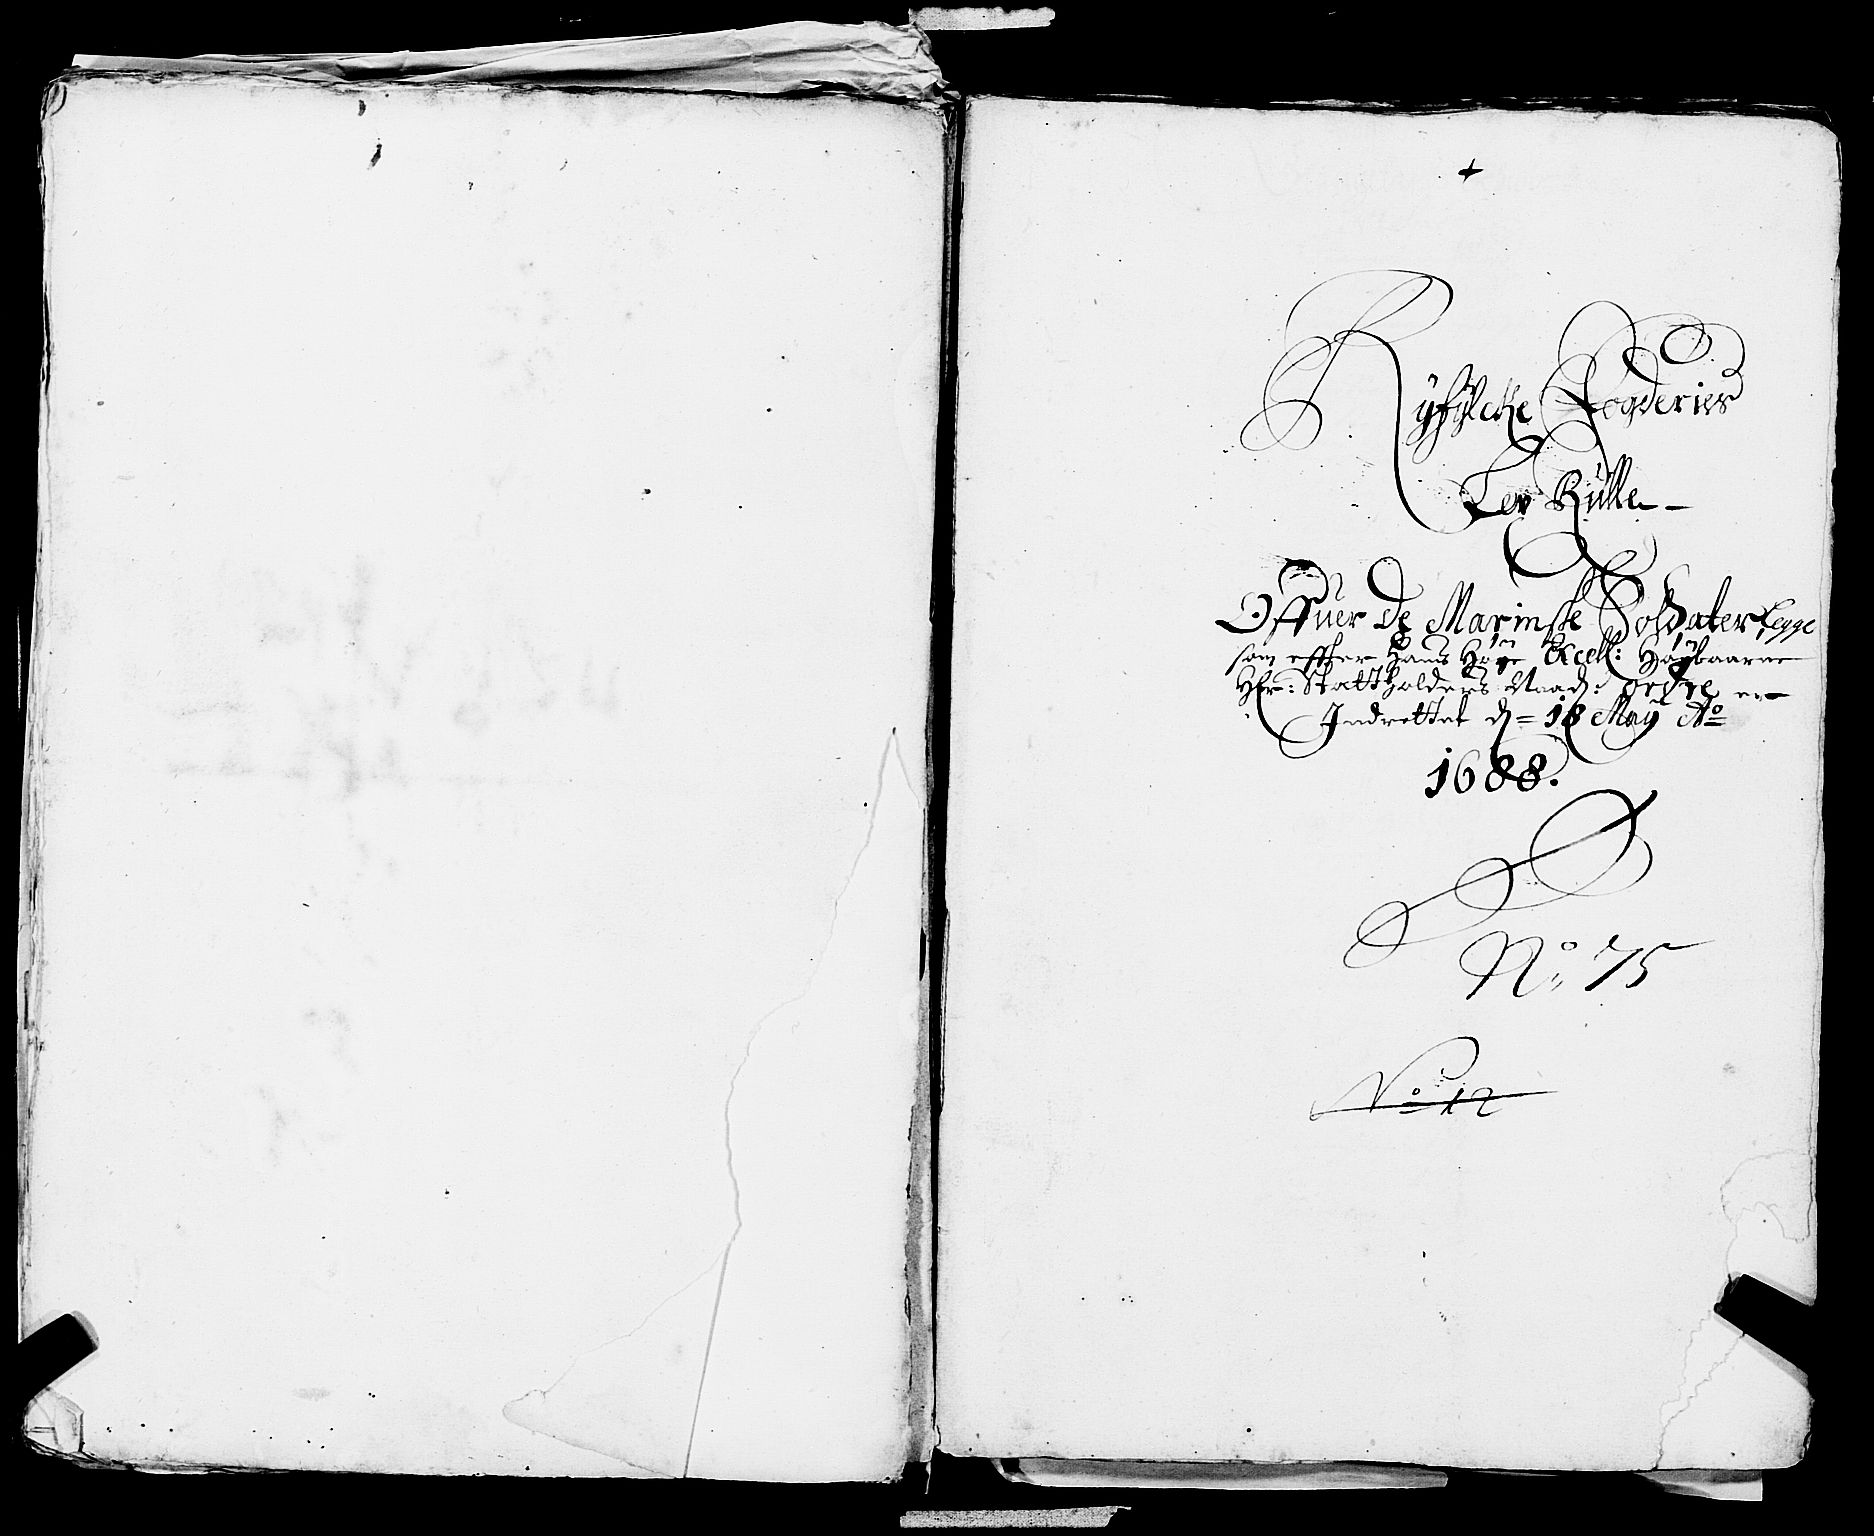 Ryfylcke Fogderies
Lev Rulle
Offuer de Marinske Soldater Legge
som effter Hans Høye Excell: Høybaarne
Hr: Statholders Naad: ordre er
Indrettet d= 18 May Ao
1688.
No 75
No 12